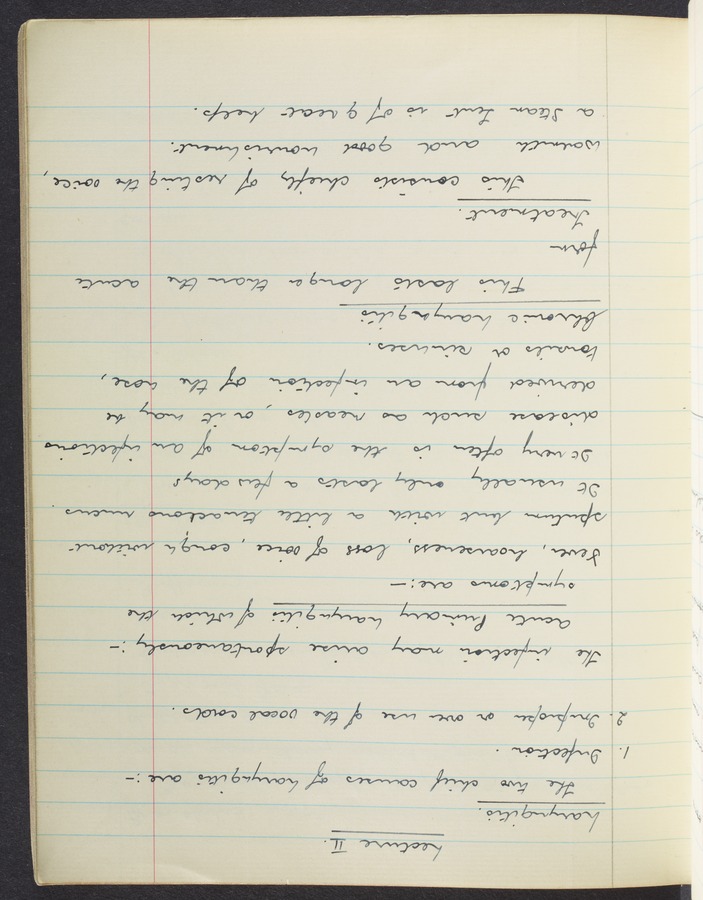 Lecture II.
Laryngitis.
The two chief causes of laryngitis are :-
1. Infection.
2. Improper or over use of the vocal cords.
The infection may arise spontaneously :-
Acute Primary Laryngitis of which the
symptoms are :-
Fever, hoarseness, loss of voice, cough without
sputum but with a little tenacious mucus.
It usually only lasts a few days
It very often is the symptom of an infectious
disease such as measles, or it may be
derived from an infection of the nose,
tonsils or sinuses.
Chronic Laryngitis
This lasts longer than the acute
form
Treatment.
This consists chiefly of resting the voice,
warmth and good nourishment.
a steam tent is of great help.